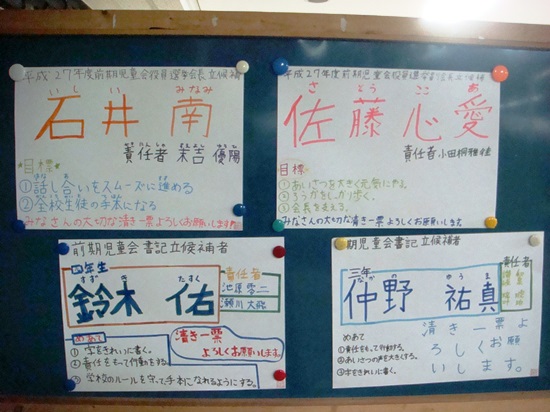 平成27年度前期児童会役員選挙会長立候補
いし い みなみ
石井 南
責任者
目標
①話し合いをスムーズに進める
②全校生徒の手本になる
みなさんの大切な清き一票よろしくお願いします
平成27年度前期児童会役員選挙副会長立候補
さ とう ここ あ
佐藤心愛
責任者 小田桐雅桂
目標
①あいさつを大きく元気にやる。
②ろうかをしっかり歩く。
③会長を支える。
みなさんの大切な清き一票よろしくお願いします
前期児童会書記立候補者
四年生
すず き たすく
鈴木 佑
責任者
池原零二
瀬川大
めあて
①字をきれいに書く。
②責任をもって行動をする。
③学校のルールを守って、手本になれるようにする。
清き一票
よろしくお願いします。
期児童会書記立候補者
三年
なか の ゆう ま
仲野 祐真
責任者
めあて
①責任をもって行動する。
②あいさつの声を大きくする。
③字をきれいに書く。
清き一票よ
ろしくお願
いします。